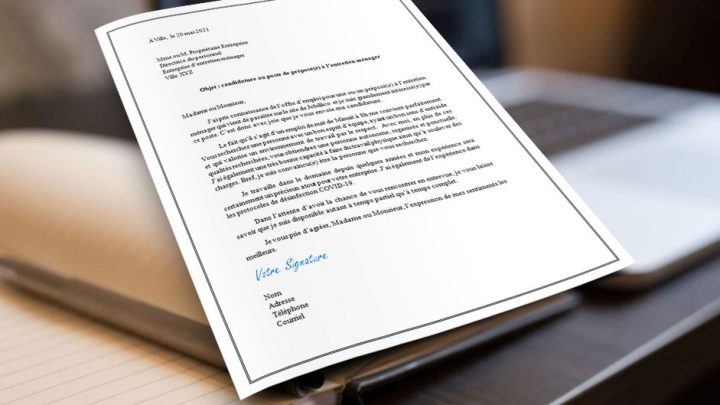 À Ville, le 20 mai 2021
Mme ou M. Propriétaire Entreprise
Directrice du personnel
Entreprise d'entretien ménager
Ville XYZ
Objet : candidature au poste de préposé(e) à l'entretien ménager
Madame ou Monsieur,
J'ai pris connaissance de l'offre d'emploi pour une ou un préposé(e) à l'entretien
ménager qui vient de paraître sur le site de Jobillico et je suis grandement intéressé(e) par
ce poste. C'est donc avec joie que je vous envoie ma candidature.
Le fait qu'il s'agit d'un emploi de nuit de Minuit à 8h me convient parfaitement.
Vous recherchez une personne avec un bon esprit d'équipe, ayant un bon sens d'entraide
et qui valorise un environnement de travail par le respect. Avec moi, en plus de ces
qualités recherchées, vous obtiendrez une personne autonome, organisée et ponctuelle.
J'ai également une très bonne capacité à faire du travail physique ainsi qu'à soulever des
charges. Bref, je suis convaincu(e) être la personne que vous recherchez.
Je travaille dans le domaine depuis quelques années et mon expérience sera
certainement un précieux atout pour votre entreprise. J'ai également de l'expérience dans
les protocoles de désinfection COVID-19.
Dans l'attente d'avoir la chance de vous rencontrer en entrevue, je vous laisse
savoir que je suis disponible autant à temps partiel qu'à temps complet.
Je vous prie d'agréer, Madame ou Monsieur, l'expression de mes sentiments les
meilleurs.
Votre Signature
Nom
Adresse
Téléphone
Courriel